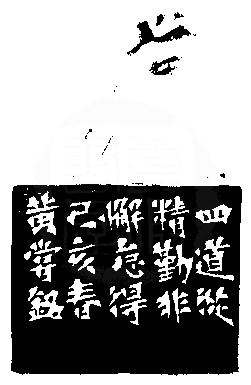 四道從
精勤非
懈怠得
己亥春
黃嘗銘